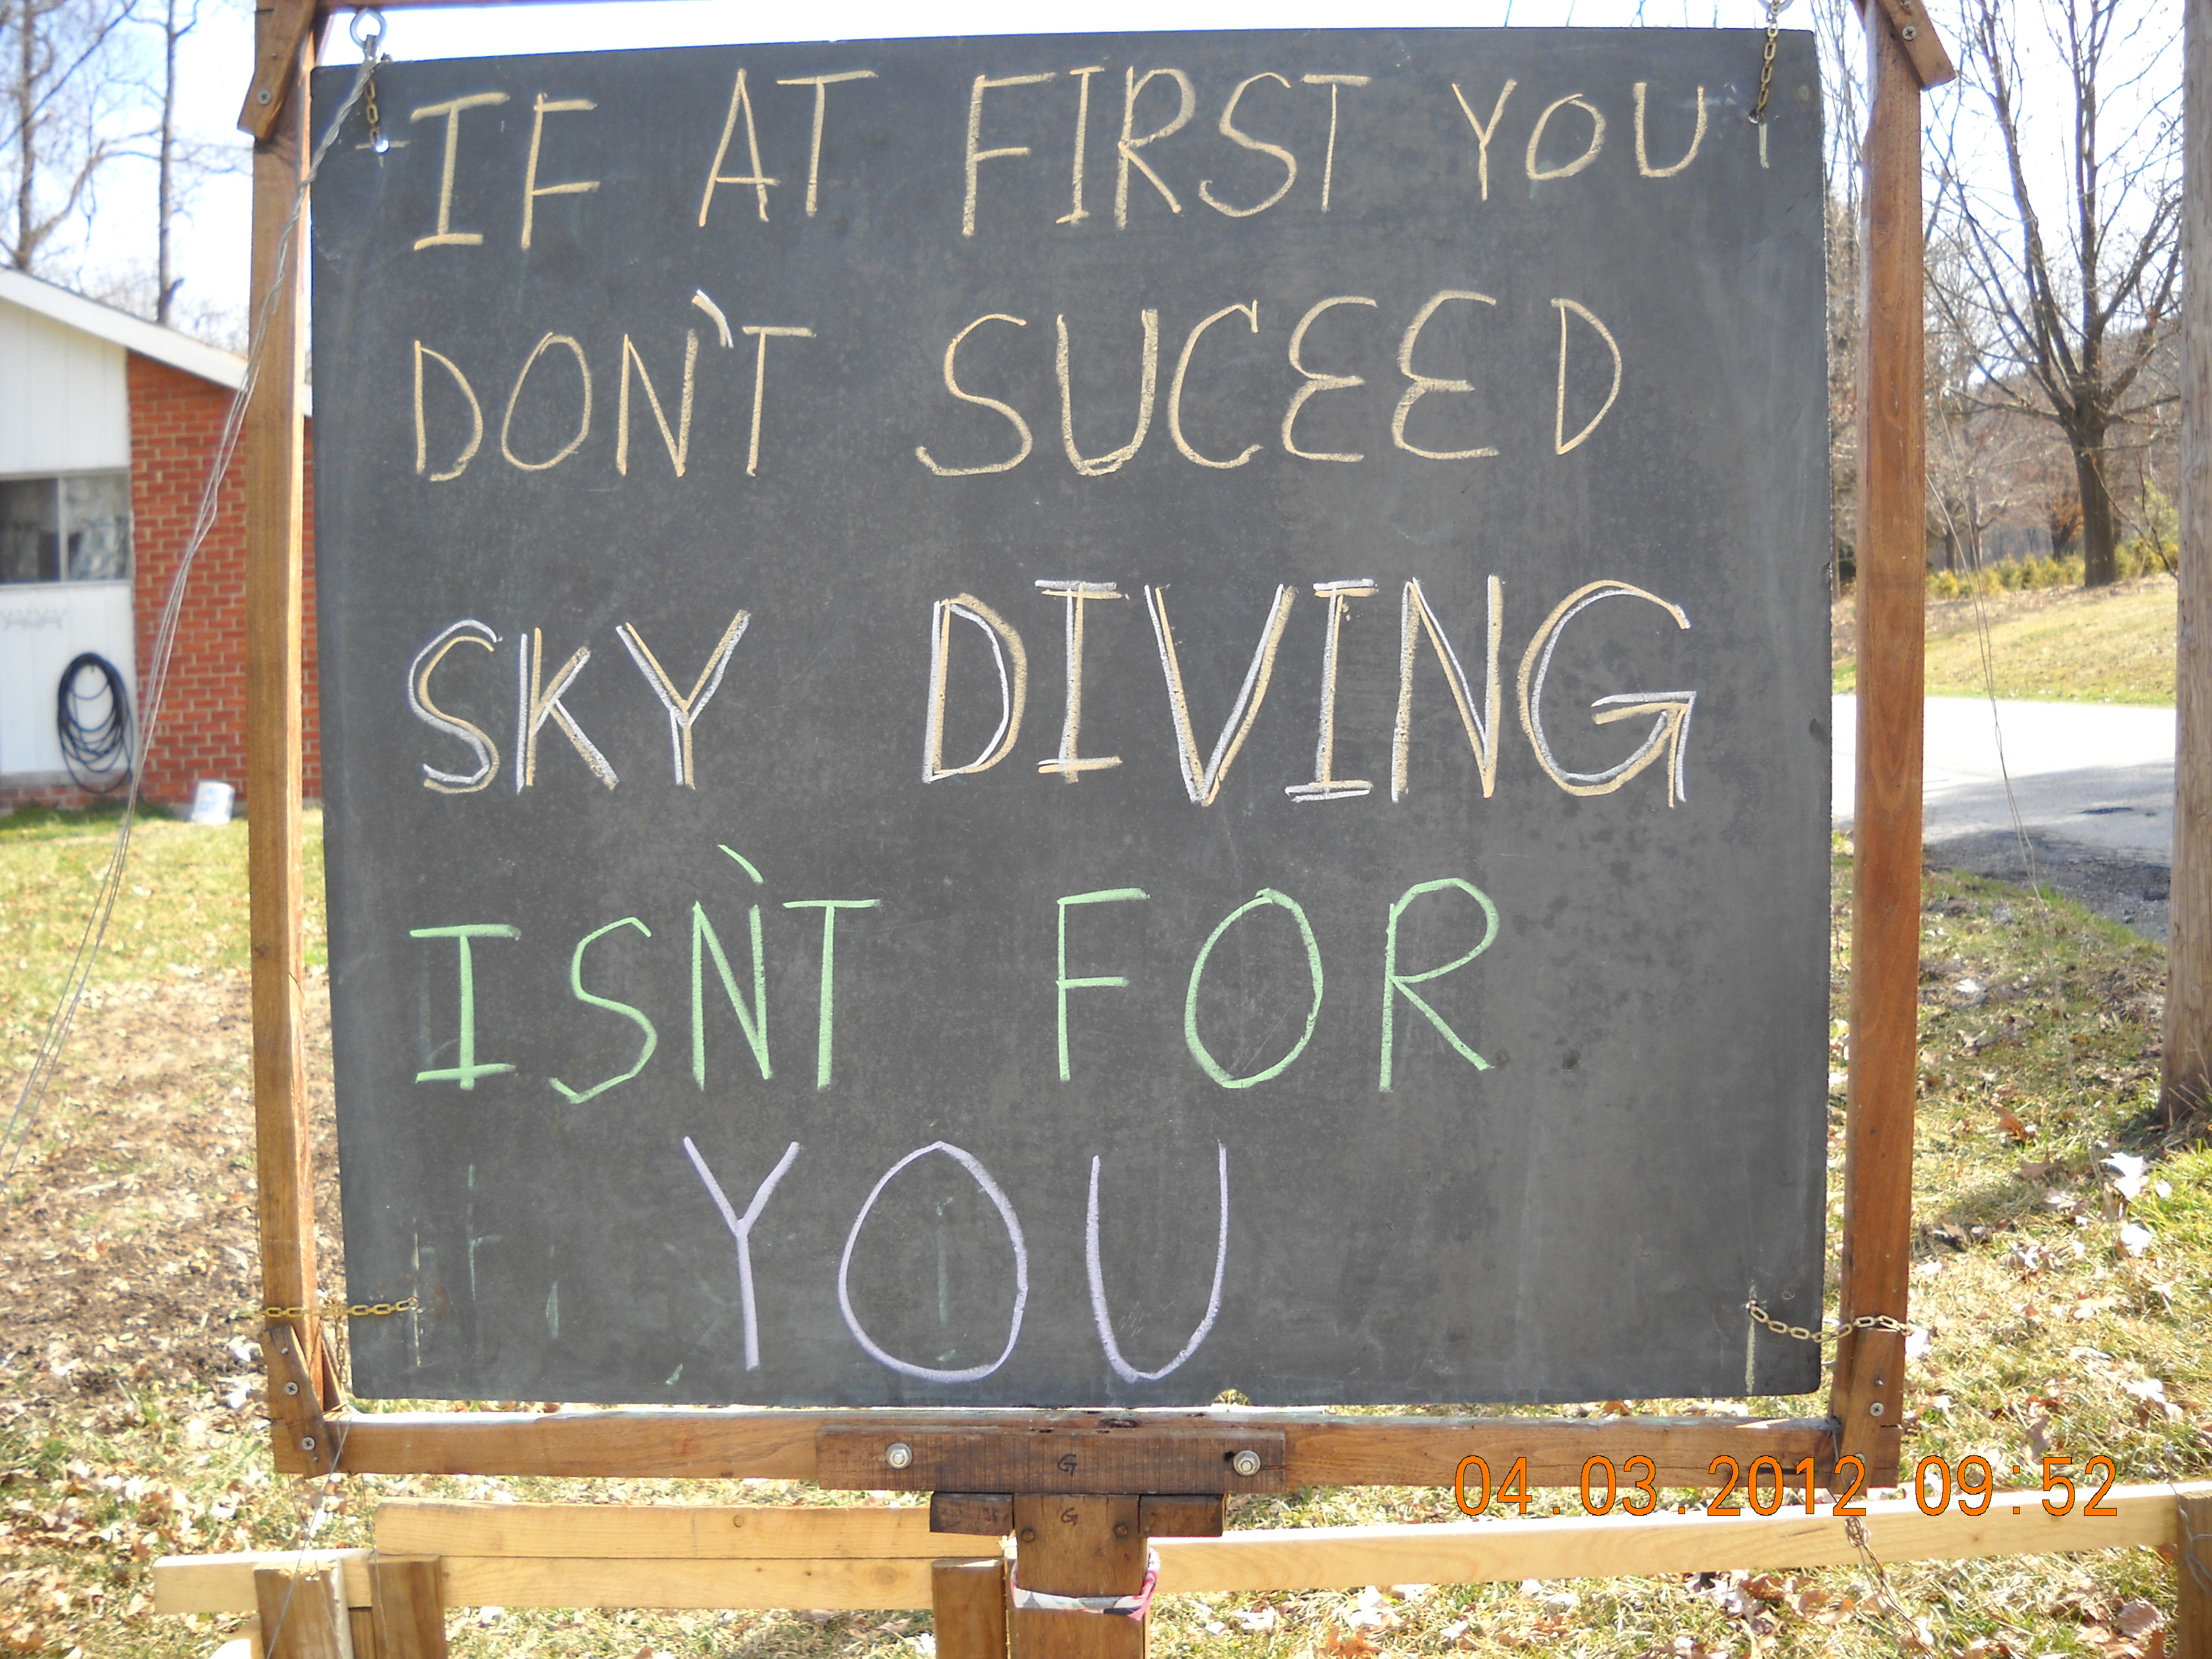 IF AT FIRST YOU
DON'T SUCEED
SKY DIVING
ISN'T FOR
YOU
G
G
04.03.2012 09:52